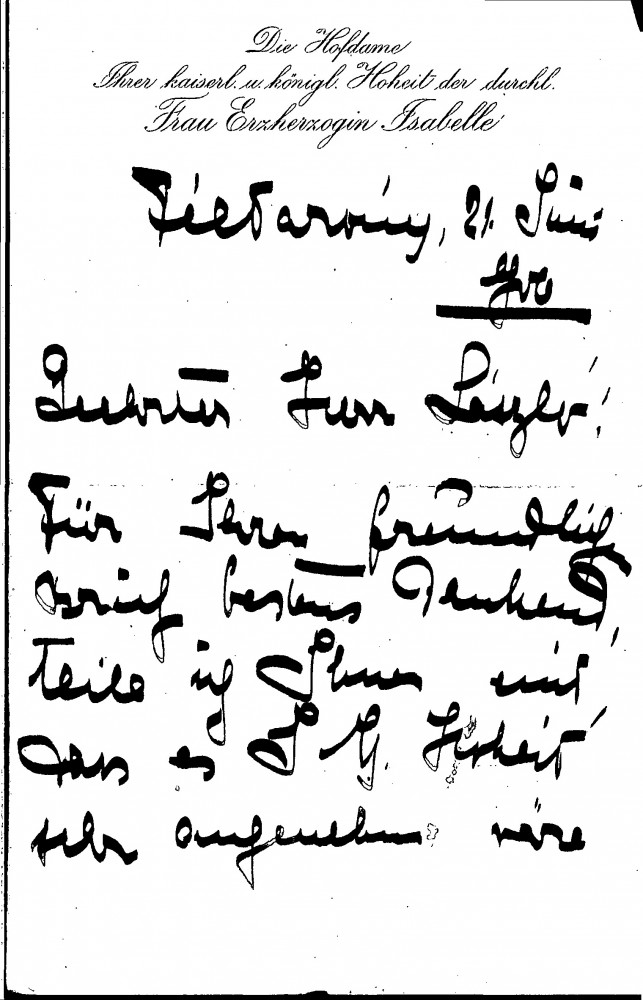 Die Hofdame
Ihrer kaiserl. u. königl. Hoheit der durchl.
Frau Erzherzogin Isabelle
Féltorony, 21. Juni
Geehrter Herr László!
Für Ihren freundlich
Brief bestens dankend,
teile ich Ihnen mit
dass es I. K. Hoheit
sehr angenehm wäre